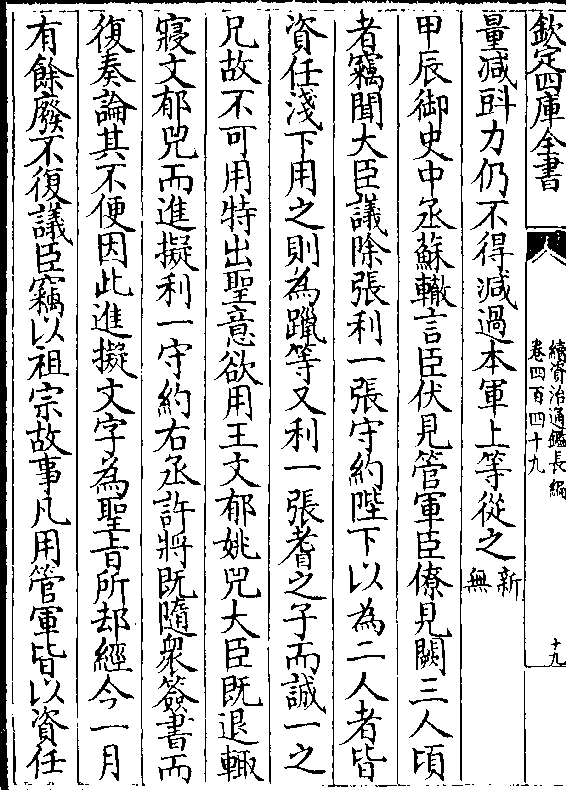 欽定四庫全書
續資治通鑑長編
卷四百四十九
十九
量減㪷力仍不得減過本軍上等從之新無
甲辰御史中丞蘇轍言臣伏見管軍臣僚見闕三人頃
者竊聞大臣議除張利一張守約陛下以為二人者皆
資任淺下用之則為躐等又利一張耆之子而誠一之
兄故不可用特出聖意欲用王文郁姚兕大臣既退輙
寢文郁兕而進擬利一守約右丞許將既隨衆簽書而
復奏論其不便因此進擬文字為聖旨所却經今一月
有餘廢不復議臣竊以祖宗故事凡用管軍皆以資任